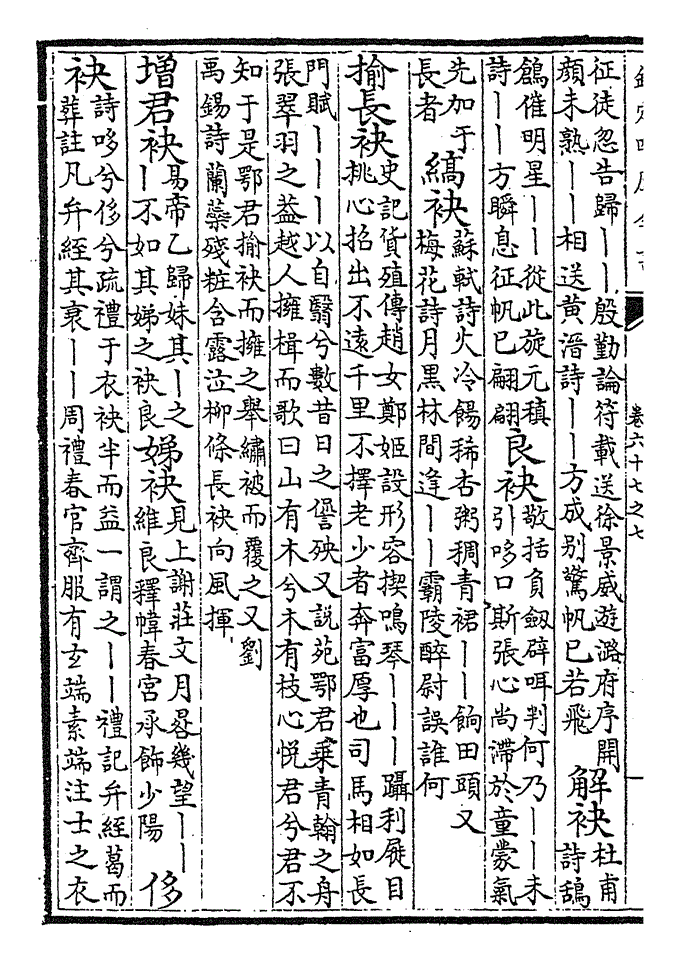 欽定四庫全書
卷六十七之七
征徒忽告歸丨丨殷勤論符載送徐景威遊潞府序開
顔未熟丨丨相送黄溍詩丨丨方成别驚帆已若飛
解袂
杜甫
詩鴰
鶬催明星丨丨從此旋元稹
詩丨丨方瞬息征帆已翩翩
良袂
敬括負劒辟咡判何乃丨丨未
引哆口斯張心尚滯於童蒙氣
先加于
長者
縞袂
蘇軾詩火冷餳稀杏粥稠青裙丨丨餉田頭又
梅花詩月黒林間逢丨丨霸陵醉尉誤誰何
揄長袂
史記貨殖傳趙女鄭姬設形容揳鳴琴丨丨丨躡利屣目
挑心招出不遠千里不擇老少者奔富厚也司馬相如長
門賦丨丨丨以自翳兮數昔日之諐殃又說苑鄂君乘青翰之舟
張翠羽之葢越人擁楫而歌曰山有木兮木有枝心悅君兮君不
知于是鄂君揄袂而擁之舉繡被而覆之又劉
禹錫詩蘭蘂殘粧含露泣柳條長袂向風揮
增君袂
易帝乙歸妹其丨之
丨不如其娣之袂良
娣袂
見上謝莊文月晷幾望丨丨
維良釋幃春宮承飾少陽
侈
袂
詩哆兮侈兮疏禮于衣袂半而益一謂之丨丨禮記弁絰葛而
葬註凡弁絰其衰丨丨周禮春官齊服有玄端素端注士之衣